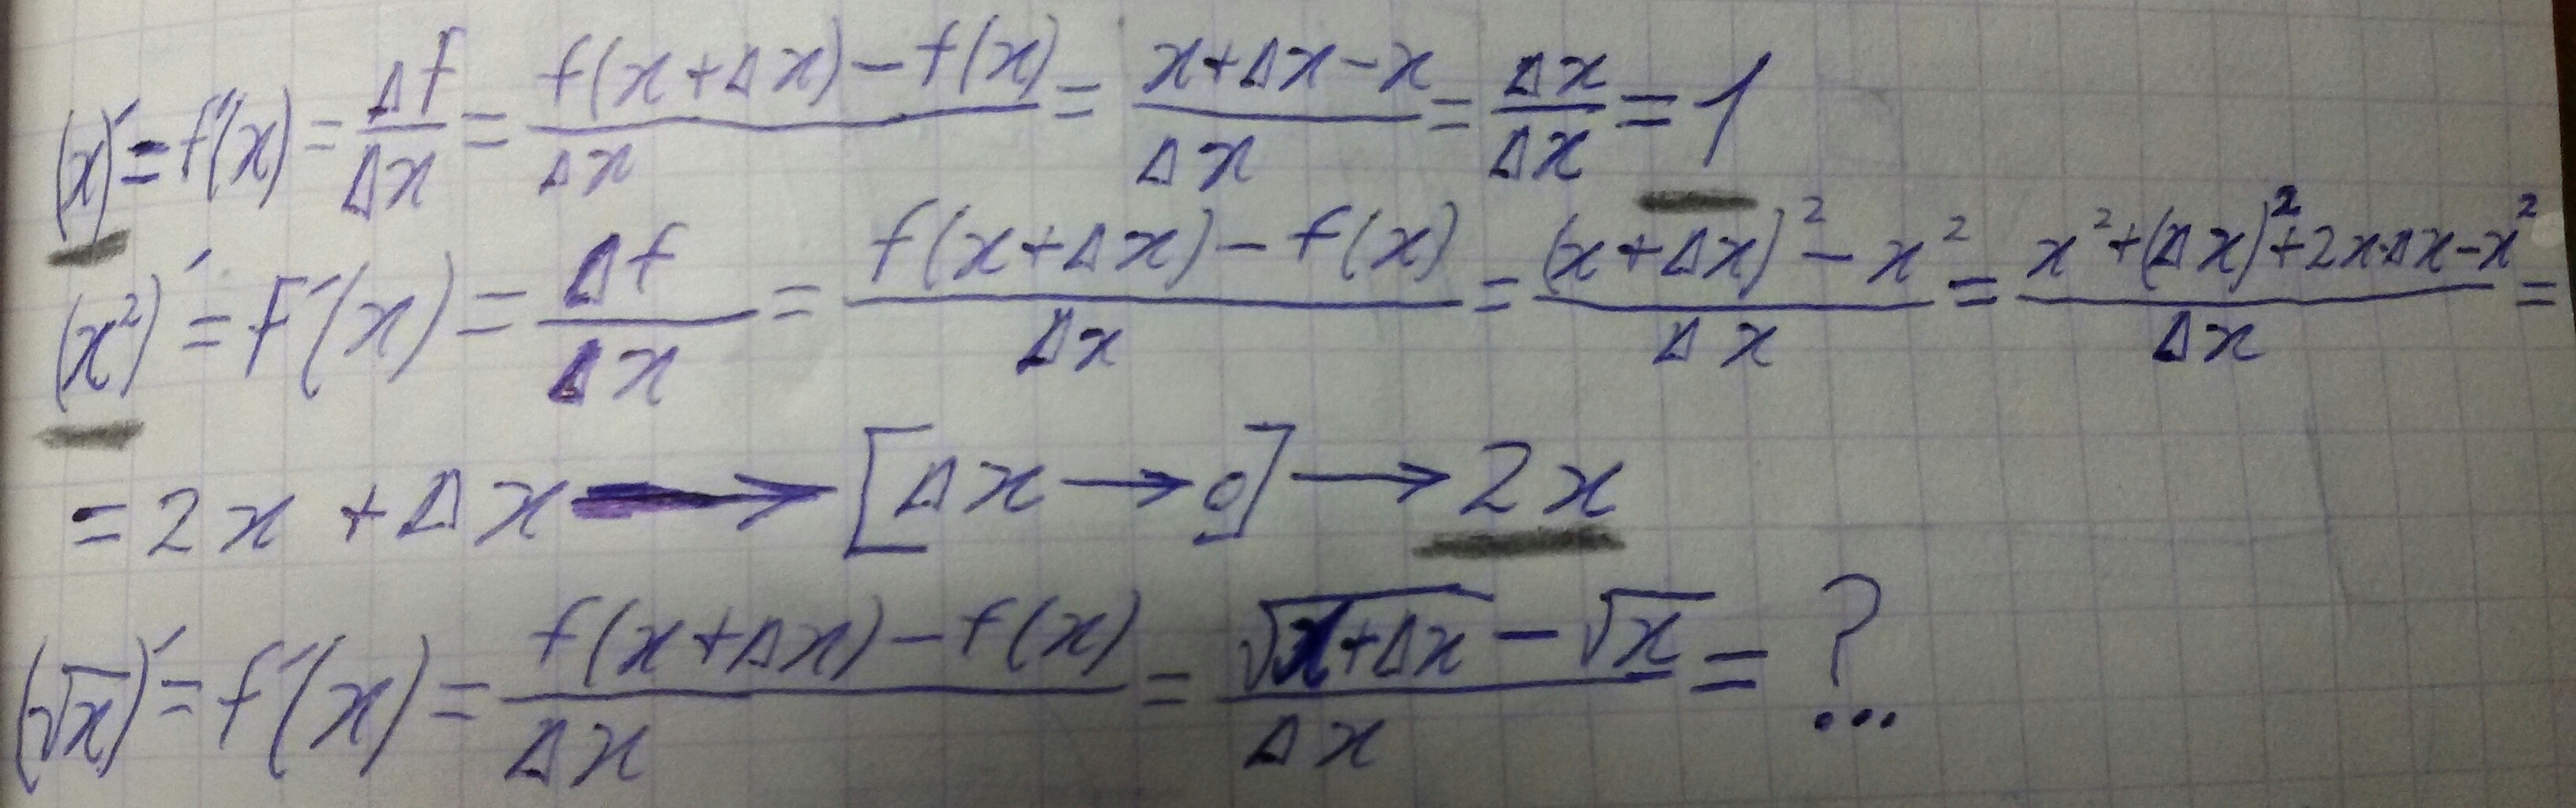 (x)' = f'(x) = Δf/Δx = (f(x+Δx) − f(x))/Δx = (x+Δx−x)/Δx = Δx/Δx = 1
(x²)' = f'(x) = Δf/Δx = (f(x+Δx) − f(x))/Δx = ((x+Δx)² − x²)/Δx = (x²+(Δx)²+2x·Δx−x²)/Δx =
= 2x + Δx → [Δx → 0] → 2x
(√x)' = f'(x) = (f(x+Δx) − f(x))/Δx = (√(x+Δx) − √x)/Δx = ? ...